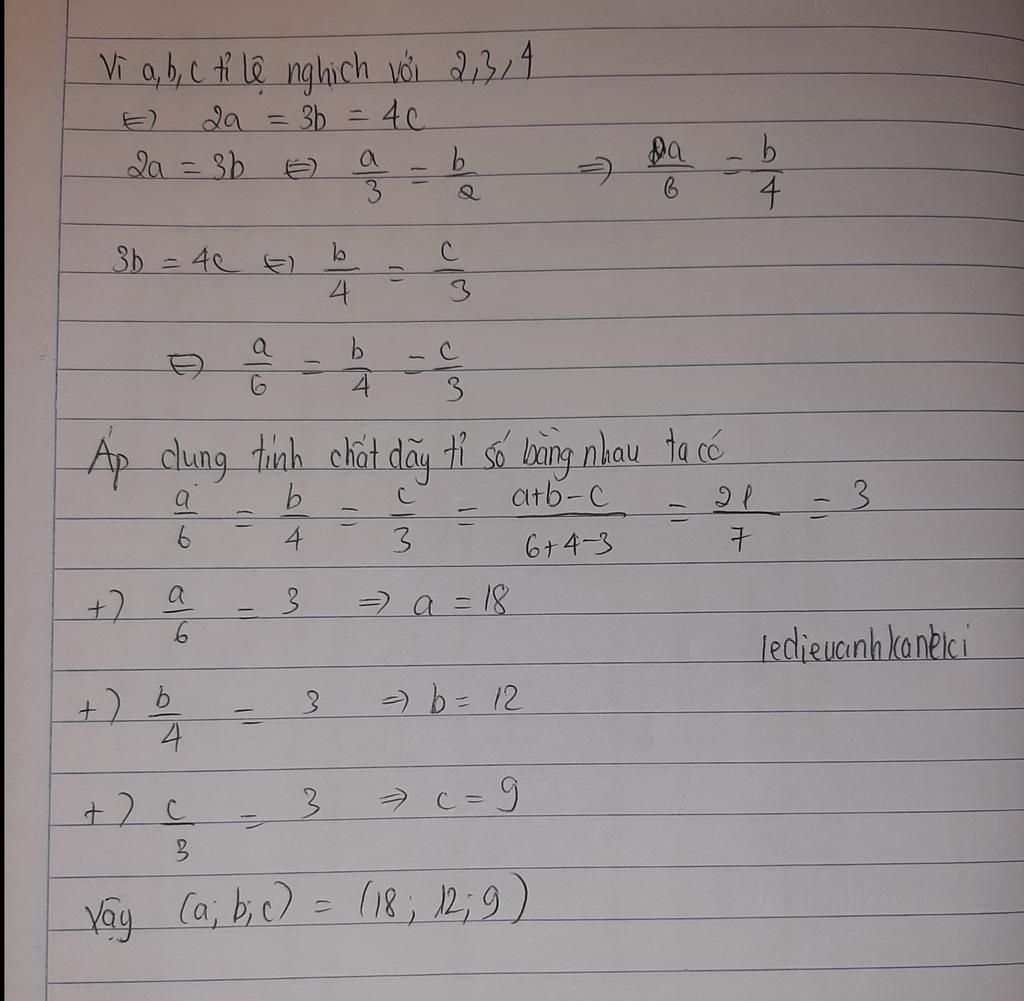 Vì a,b,c tỉ lệ nghịch với 2,3,4
⇔ 2a = 3b = 4c
2a = 3b ⇔ a/3 = b/2 ⇒ a/6 = b/4
3b = 4c ⇔ b/4 = c/3
⇔ a/6 = b/4 = c/3
Áp dung tính chất dãy tỉ số bằng nhau ta có
a/6 = b/4 = c/3 = (a+b-c)/(6+4-3) = 21/7 = 3
+) a/6 = 3 ⇒ a = 18
+) b/4 = 3 ⇒ b = 12
+) c/3 = 3 ⇒ c = 9
Vậy (a; b; c) = (18; 12; 9)